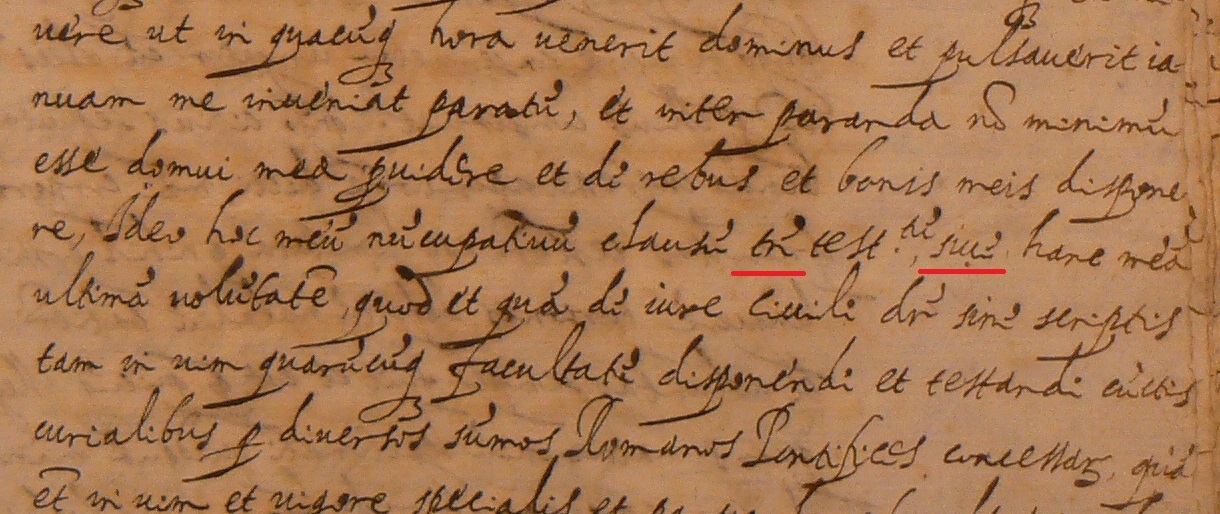 uere ut in quacūq hora uenerit dominus et pulsauerit ia-
nuam me inueniāt paratū, et inter paranda nō minimū
esse domui meae ꝓuidēre et dē rebus et bonis meis dispone
re, Ideo hoc meū nūcupatiuū clausū tn̄ testtū, siuē hanc meā
ultimā volūtatē, quod et quā dē iure ciuili dr̄ sinē scriptis
tam in uim quarūcūq facultatū disponēndi et testandi cūctis
curialibus ꝑ diuersos sūmos Romanos Pontifices concessar, quā
et̄ in uim et uigore specialis et